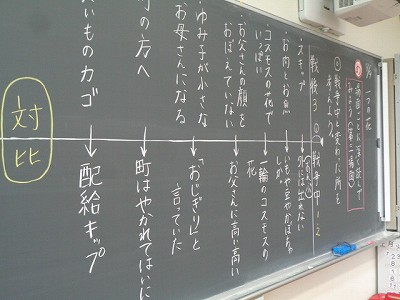 一つの花
場面ごとに
みよう(第三場面)
戦争中と変わった所を
考えよう。
戦後3
戦争中1・2
スキップ
外には出れない
・お肉とお魚
いもや豆やかぼちゃ
しか
・コスモスの花で
いっぱい
一輪のコスモスの
花
・お父さんの顔を
おぼえていない
お父さんに高い高い
・ゆみ子が小さな
お母さんになる
「おじぎり」と
言っていた
の方へ
町はやかれてはいに
いものカゴ
配給キップ
対比